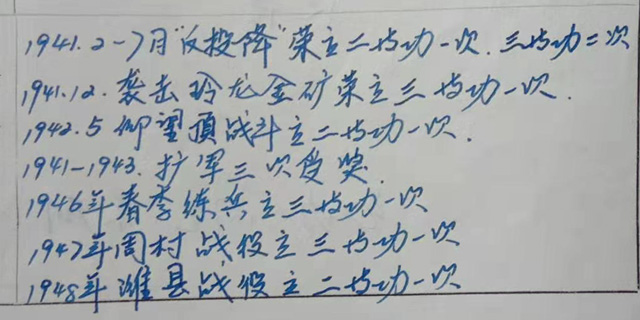 1941.2-7月"反投降"荣立二等功一次.三等功二次
1941.12.袭击玲龙金矿荣立三等功一次.
1942.5仰望顶战斗立二等功一次.
1941-1943.扩军三次受奖.
1946年春季练兵立三等功一次
1947年周村战役立三等功一次
1948年潍县战役立二等功一次